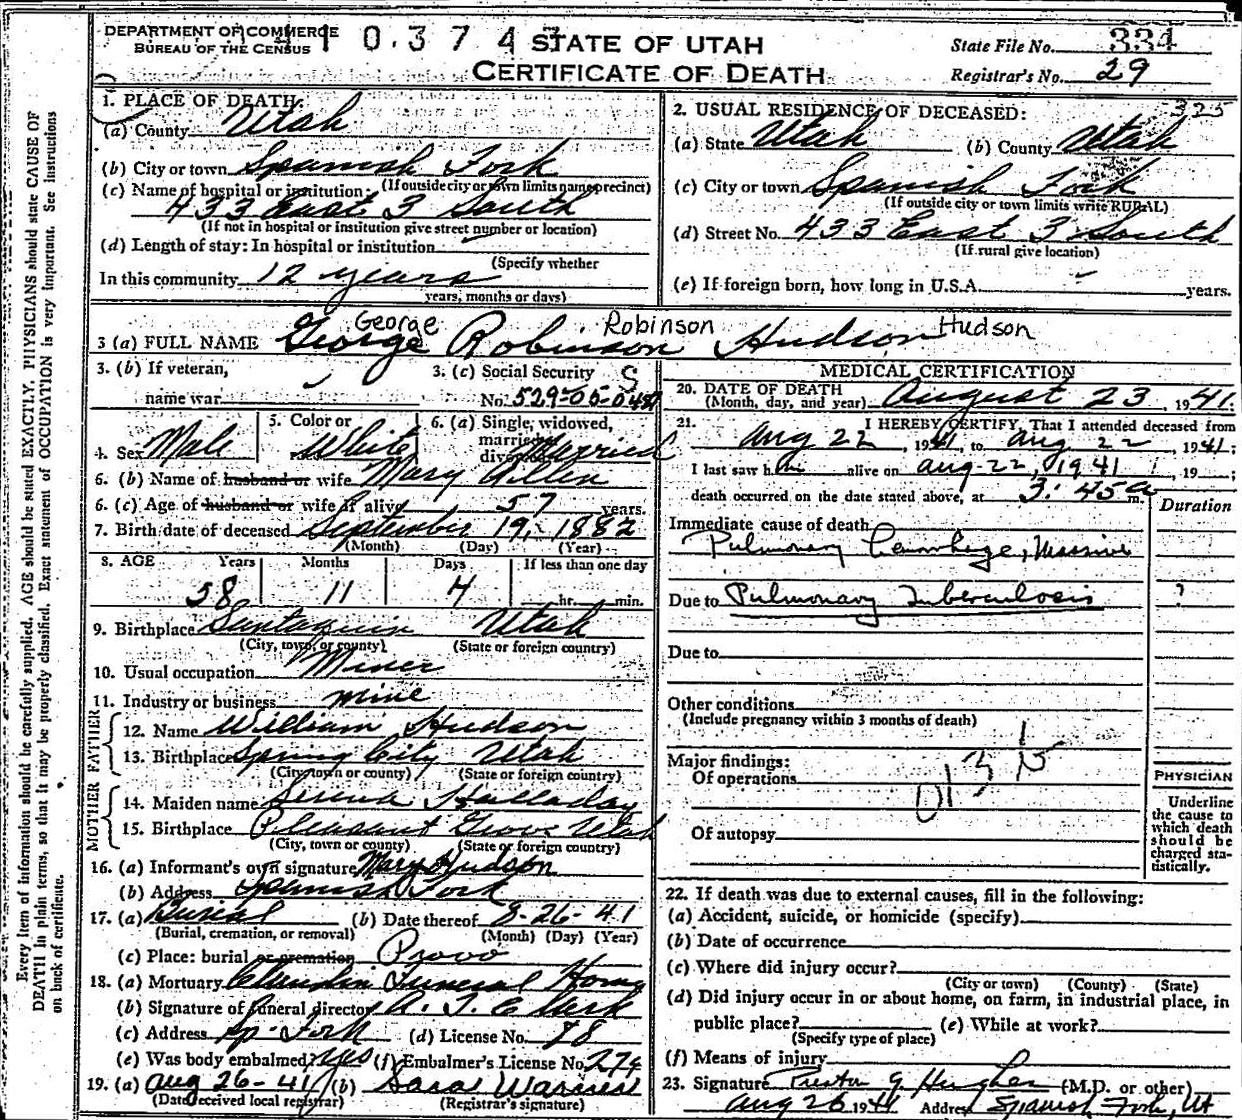 DEPARTMENT OF COMMERCE
BUREAU OF THE CENSUS
10.374
STATE OF UTAH
CERTIFICATE OF DEATH
State File No. 334
Registrar's No. 29
Every item of information should be carefully supplied. AGE should be stated EXACTLY. PHYSICIANS should state CAUSE OF
DEATH in plain terms, so that it may be properly classified. Exact statement of OCCUPATION is very important. See instructions
on back of certificate.
1. PLACE OF DEATH:
(a) County Utah
(b) City or town Spanish Fork
(If outside city or town limits name precinct)
(c) Name of hospital or institution:
433 East 3 South
(If not in hospital or institution give street number or location)
(d) Length of stay: In hospital or institution
(Specify whether
In this community 12 years
years, months or days)
325
2. USUAL RESIDENCE OF DECEASED:
(a) State Utah (b) County Utah
(c) City or town Spanish Fork
(If outside city or town limits write RURAL)
(d) Street No. 433 East 3 South
(If rural give location)
(e) If foreign born, how long in U.S.A. years.
George Robinson Hudson
3 (a) FULL NAME George Robinson Hudson
3. (b) If veteran,
name war
3. (c) Social Security
No. 529-05-
4. Sex Male
5. Color or
White
6. (a) Single, widowed,
married
Married
6. (b) Name of husband or wife Mary Allen
6. (c) Age of husband or wife if alive 57 years.
7. Birth date of deceased September 19, 1882
(Month) (Day) (Year)
8. AGE Years Months Days If less than one day
58 11 4 hr. min.
9. Birthplace Santaquin Utah
(City, town, or county) (State or foreign country)
10. Usual occupation Miner
11. Industry or business mine
FATHER
12. Name William Hudson
13. Birthplace Spring City Utah
(City town or county) (State or foreign country)
MOTHER
14. Maiden name Halladay
15. Birthplace Pleasant Grove Utah
(City, town or county) (State or foreign country)
16. (a) Informant's own signature Mary Hudson
(b) Address Spanish Fork
17. (a) Burial (b) Date thereof 8-26-41
(Burial, cremation, or removal) (Month) (Day) (Year)
(c) Place: burial or cremation Provo
18. (a) Mortuary Funeral Home
(b) Signature of funeral director A. T.
(c) Address Sp. Fork (d) License No. 78
(e) Was body embalmed yes (f) Embalmer's License No. 274
19. (a) Aug 26-41 (b)
(Date received local registrar) (Registrar's signature)
MEDICAL CERTIFICATION
20. DATE OF DEATH
(Month, day, and year) August 23, 1941.
21. I HEREBY CERTIFY, That I attended deceased from
Aug 22, 1941, to Aug 22, 1941;
I last saw him alive on Aug-22, 1941, 19 ;
death occurred on the date stated above, at 3:45 a m.
Duration
Immediate cause of death
Pulmonary hemorrhage, Massive
Due to Pulmonary Tuberculosis ?
Due to
Other conditions
(Include pregnancy within 3 months of death)
Major findings:
Of operations
013
Of autopsy
PHYSICIAN
Underline
the cause to
which death
should be
charged sta-
tistically.
22. If death was due to external causes, fill in the following:
(a) Accident, suicide, or homicide (specify)
(b) Date of occurrence
(c) Where did injury occur?
(City or town) (County) (State)
(d) Did injury occur in or about home, on farm, in industrial place, in
public place? (e) While at work?
(Specify type of place)
(f) Means of injury
23. Signature Preston G Hughes (M.D. or other)
Aug 26 1941 Address Spanish Fork, Ut